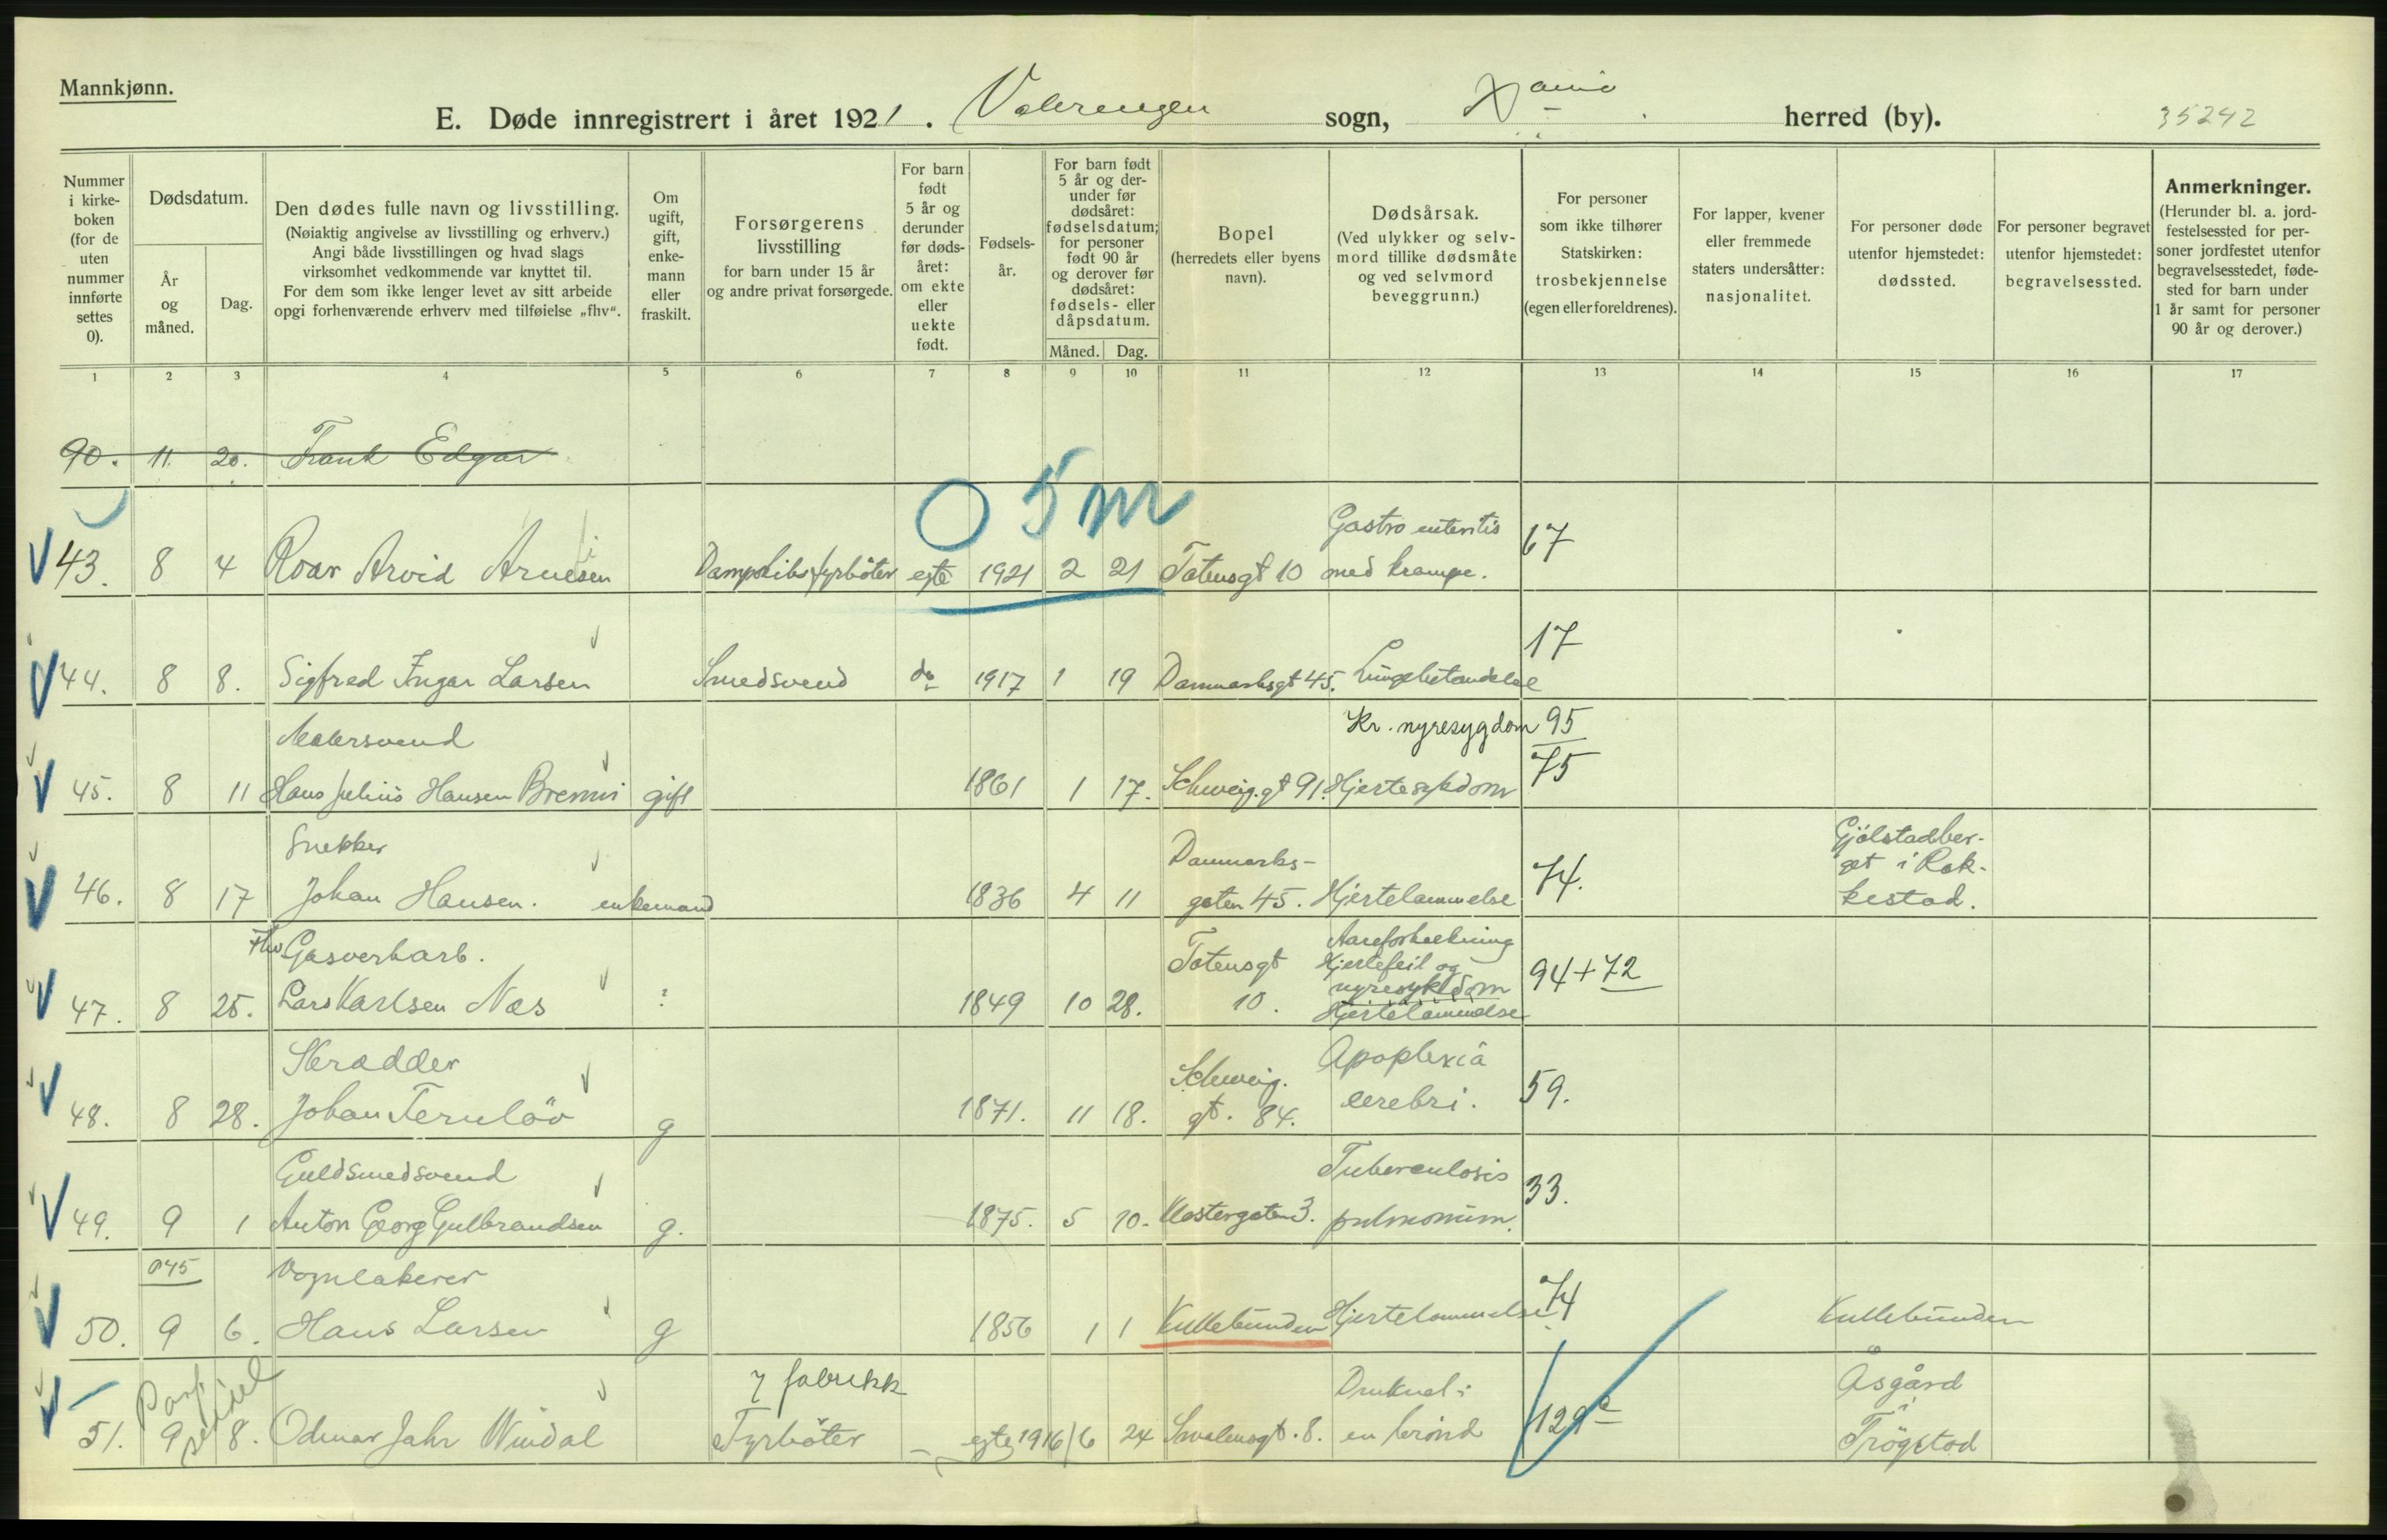 Mannkjønn.
E. Døde innregistrert i året 1921. Vålerengen sogn, Kania herred (by). 35242
Nummer i kirkeboken (for de uten nummer innførte settes 0).
Dødsdatum.
År og måned.
Dag.
Den dødes fulle navn og livsstilling.
(Nøiaktig angivelse av livsstilling og erhverv.)
Angi både livsstillingen og hvad slags
virksomhet vedkommende var knyttet til.
For dem som ikke lenger levet av sitt arbeide
opgi forhenværende erhverv med tilføielse „fhv“.
Om ugift, gift, enkemann eller fraskilt.
Forsørgerens livsstilling
for barn under 15 år
og andre privat forsørgede.
For barn født 5 år og derunder før dødsåret: om ekte eller uekte født.
Fødselsår.
For barn født 5 år og derunder før dødsåret: fødselsdatum; for personer født 90 år og derover før dødsåret: fødsels- eller dåpsdatum.
Måned. Dag.
Bopel
(herredets eller byens navn).
Dødsårsak.
(Ved ulykker og selvmord tillike dødsmåte og ved selvmord beveggrunn.)
For personer som ikke tilhører Statskirken: trosbekjennelse (egen eller foreldrenes).
For lapper, kvener eller fremmede staters undersåtter: nasjonalitet.
For personer døde utenfor hjemstedet: dødssted.
For personer begravet utenfor hjemstedet: begravelsessted.
Anmerkninger.
(Herunder bl. a. jordfestelsessted for personer jordfestet utenfor begravelsesstedet, fødested for barn under 1 år samt for personer 90 år og derover.)
1 2 3 4 5 6 7 8 9 10 11 12 13 14 15 16 17
90. 11. 20. Frank Edgar
0 5 m
Gastro enteritis 67
43. 8 4 Roar Arvid Arnesen Dampskibsfyrbøter egte 1921 2 21 Totensgt 10 med krampe.
17
44. 8 8. Sigfred Ingar Larsen Smedsvend do 1917 1 19 Danmarksgt 45. Lungebetændelse
Malersvend Kr. nyresygdom 95
75
45. 8 11 Hans Julius Hansen gift 1861 1 17. Schweig.gt 91. Hjertesykdom
Snekker Danmarks- 74. Gjölstadber-
get i Rak-
46. 8 17 Johan Hansen. enkemand 1836 4 11 gaten 45. Hjertelammelse kestad.
Fhv Gasverkarb. Totensgt Aareforkalkning
Hjertefeil og 94+72
nyresykdom
47. 8 25. Lars Karlsen Næs ? 1849 10 28. 10. Hjertelammelse
Skrædder Schweig. Apoplexia
48. 8 28. Johan Ternlöv g 1871. 11 18. gt. 84. cerebri. 59.
Guldsmedsvend Tuberculosis 33.
49. 9 1 Anton Georg Gulbrandsen g. 1875. 5 10. Klostergaten 3. pulmonum.
045 Vognlakerer
50. 9 6. Hans Larsen g 1856 1 1 Kullebunden Hjertelammelse 74 Kullebunden
Politi seddel
7 fabrikk Druknet i Åsgård
i
51. 9 8. Odmar Jahr Windal Fyrbøter egte 1916 6 24 Smålensgt. 8. en brönd 129c Trögstad